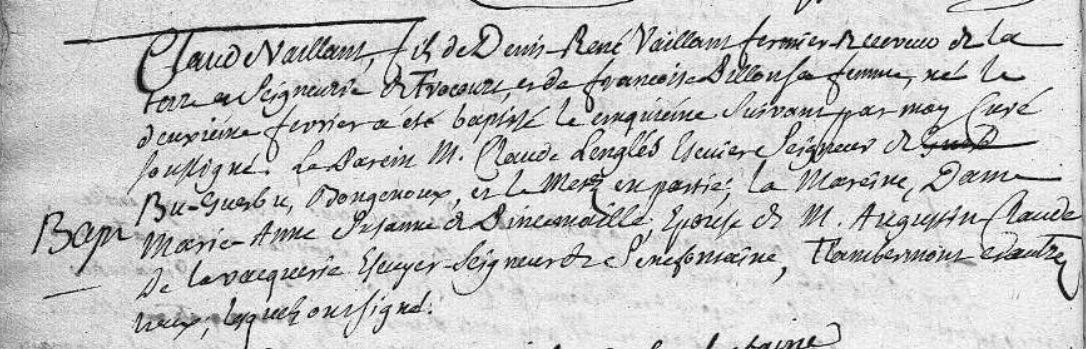 Claude Vaillant, fils de Denis-René Vaillant fermier-receveur de la
terre et Seigneurie de Frocourt, et de françoise Billon sa femme, né le
deuxième fevrier a été baptisé le cinquième suivant par moy Curé
soussigné. Le Parein M. Claude Lenglés Ecuier Seigneur de
Bu-Guerbu, et le Metz en partie; la Mareine, Dame
Bap Marie-Anne Susanne de Epouse de M. Augustin-Claude
De la vacquerie Ecuyer-Seigneur de Senefontaine, Flambermont et autres
lieux, lesquels ont signé.
fontaine